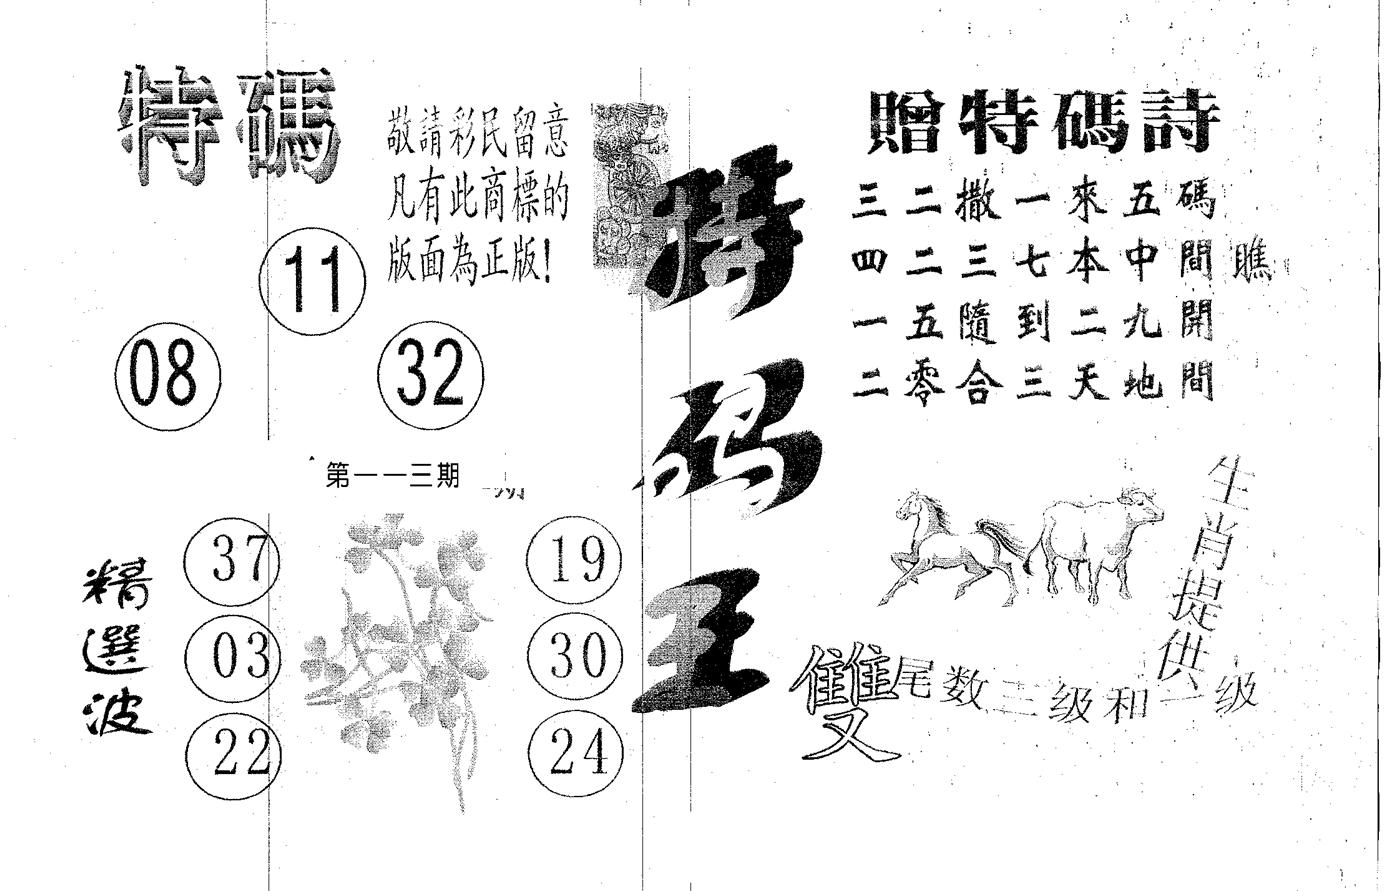 特碼
敬請彩民留意
凡有此商標的
版面為正版!
11
08
32
第一一三期
期
精選波
37
03
22
19
30
24
特码王
贈特碼詩
三二撒一來五碼
四二三七本中間瞧
一五隨到二九開
二零合三天地間
生肖提供
雙尾数二级和一级